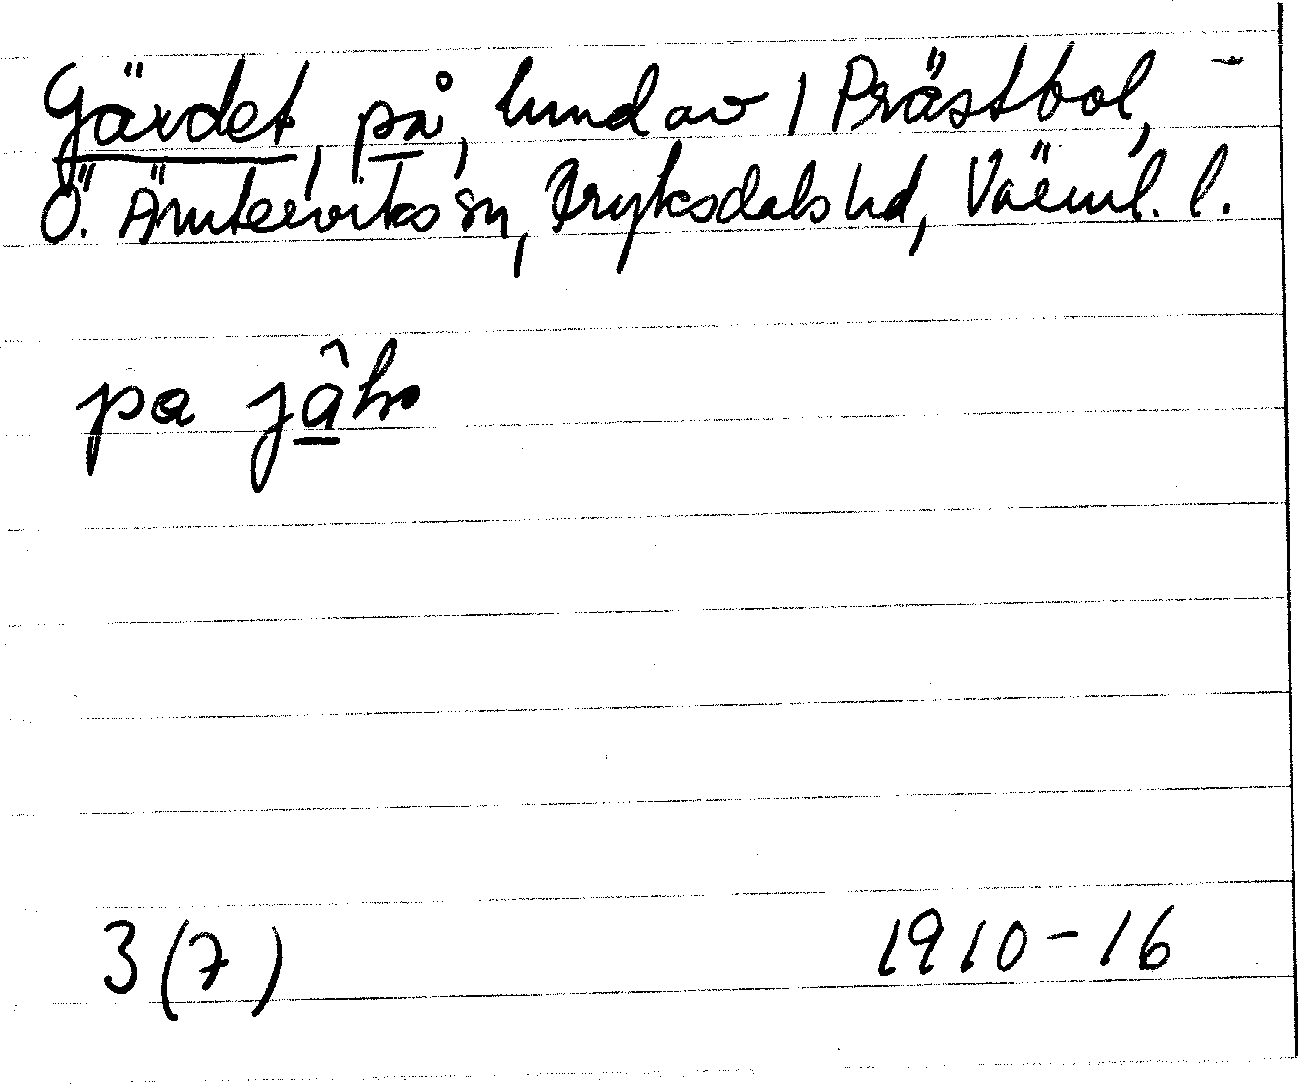 Gärdet, på, hmd av 1 Prästbol, -
Ö. Ämterviks sn, Fryksdals hd, Värml. l.
pa jâ
3 (7) 1910-16